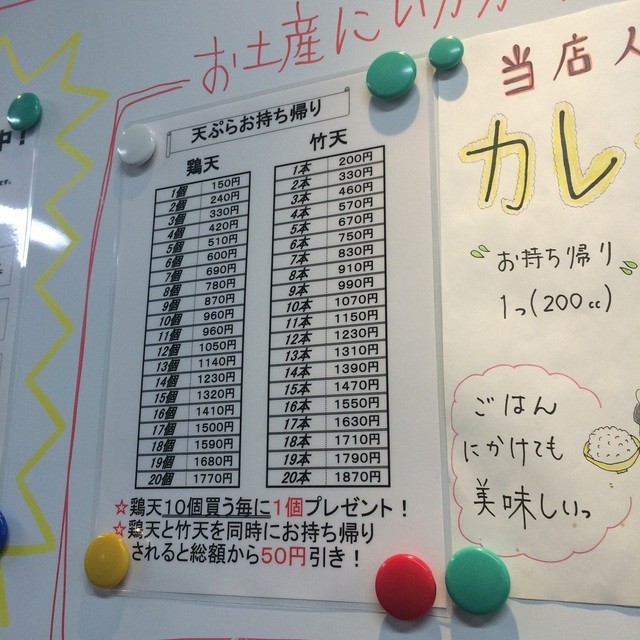 お土産にいかが
天ぷらお持ち帰り
鶏天
1個 150円
2個 240円
3個 330円
4個 420円
5個 510円
6個 600円
7個 690円
8個 780円
9個 870円
10個 960円
11個 960円
12個 1050円
13個 1140円
14個 1230円
15個 1320円
16個 1410円
17個 1500円
18個 1590円
19個 1680円
20個 1770円
竹天
1本 200円
2本 330円
3本 460円
4本 570円
5本 670円
6本 750円
7本 830円
8本 910円
9本 990円
10本 1070円
11本 1150円
12本 1230円
13本 1310円
14本 1390円
15本 1470円
16本 1550円
17本 1630円
18本 1710円
19本 1790円
20本 1870円
☆鶏天10個買う毎に1個プレゼント！
☆鶏天と竹天を同時にお持ち帰り
されると総額から50円引き！
当店人
カレ
お持ち帰り
1つ(200cc)
ごはん
にかけても
美味しいっ
中！
ます。